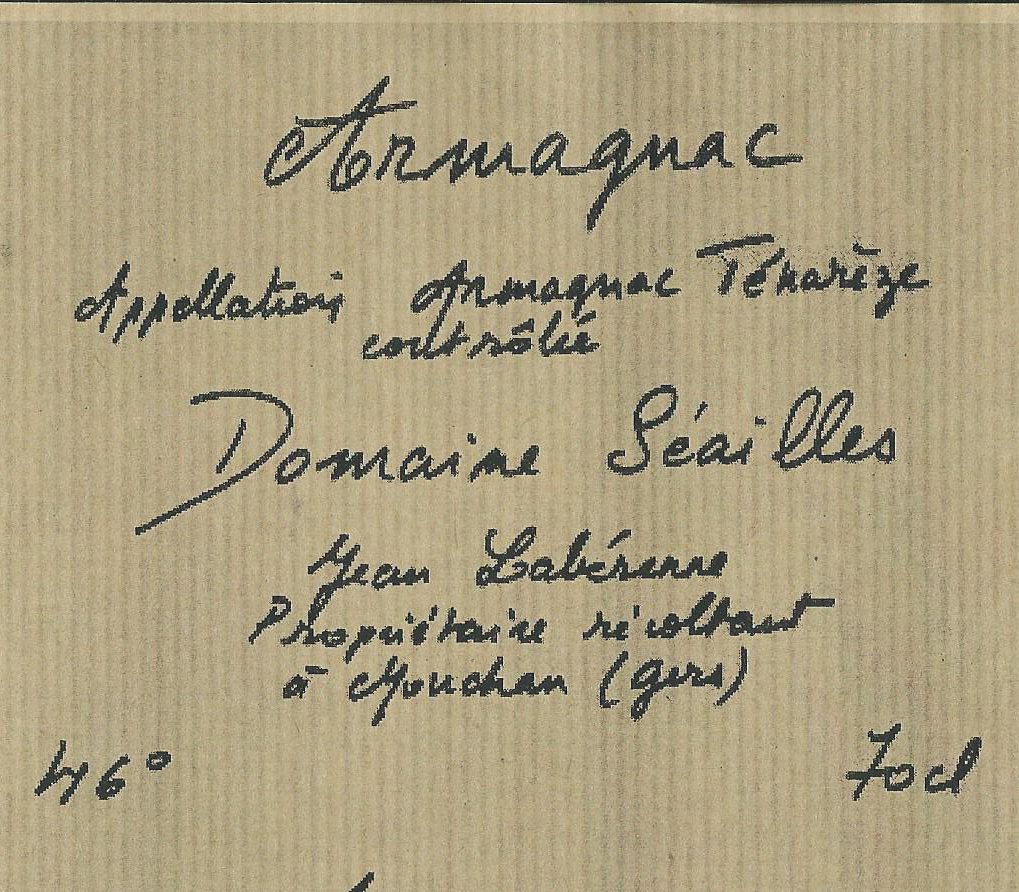 Armagnac
Appellation Armagnac Ténarèze
contrôlée
Domaine Séailles
Jean Labérenne
Propriétaire récoltant
à Mouchan (Gers)
46° 70cl